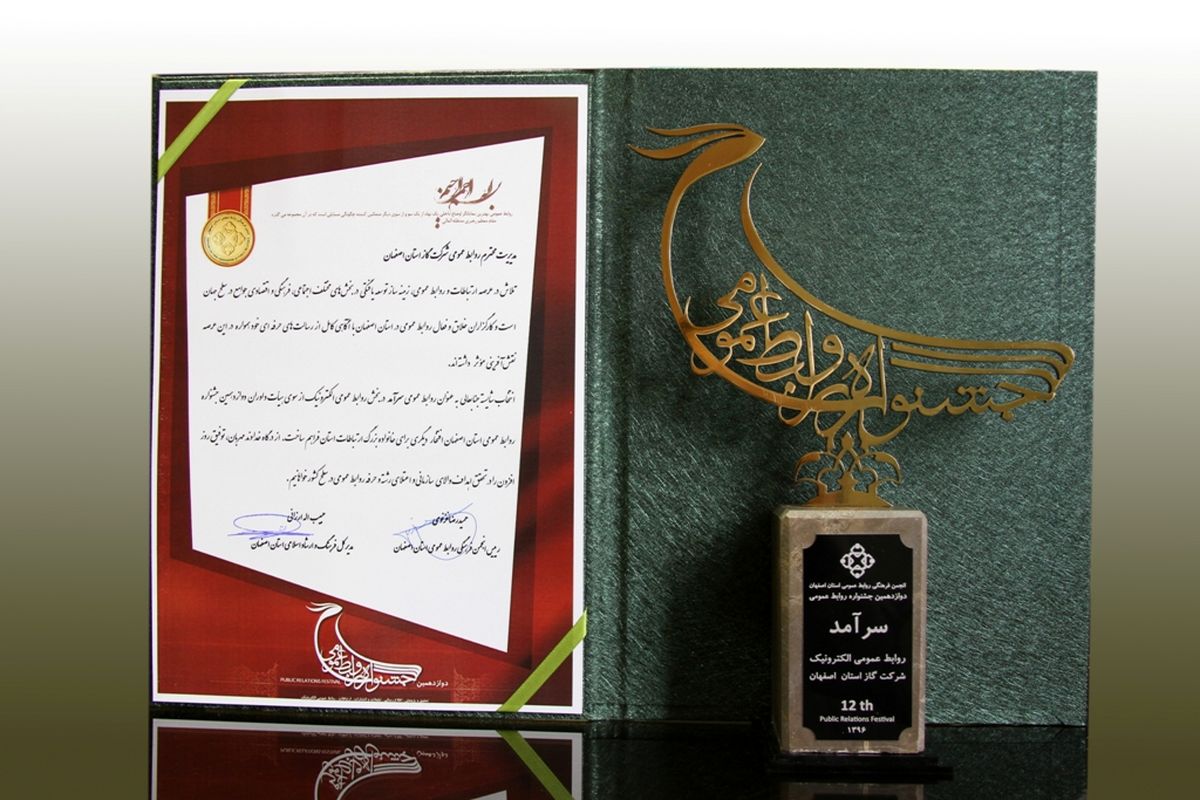 روابط عمومی، بهترین نشانگر اوضاع داخلی یک نهاد از یک سو و از سوی دیگر منعکس کننده چگونگی مسایلی است که در آن مجموعه می گذرد
مقام معظم رهبری
مدیریت محترم روابط عمومی شرکت گاز استان اصفهان
تلاش در عرصه ارتباطات و روابط عمومی، زمینه ساز توسعه یافتگی در بخش های مختلف اجتماعی، فرهنگی و اقتصادی جوامع در سطح جهان
است و کارگزاران خلاق و فعال روابط عمومی در استان اصفهان با آگاهی کامل از رسالت های حرفه ای خود همواره در این عرصه
نقش آفرینی موثر داشته اند.
انتخاب شایسته جنابعالی به عنوان روابط عمومی سرآمد در بخش روابط عمومی الکترونیک از سوی هیات داوران دوازدهمین جشنواره
روابط عمومی استان اصفهان افتخار دیگری برای خانواده بزرگ ارتباطات استان فراهم ساخت. از درگاه خداوند مهربان، توفیق روز
افزون را در تحقق اهداف والای سازمانی و اعتلای رشته و حرفه روابط عمومی در سطح کشور خواهانیم.
حمیدرضا
رییس انجمن فرهنگی روابط عمومی استان اصفهان
حبیب اله ارزانی
مدیرکل فرهنگ و ارشاد اسلامی استان اصفهان
جشنواره روابط عمومی
دوازدهمین
PUBLIC RELATIONS FESTIVAL
جشنواره روابط عمومی
انجمن فرهنگی روابط عمومی استان اصفهان
دوازدهمین جشنواره روابط عمومی
سرآمد
روابط عمومی الکترونیک
شرکت گاز استان اصفهان
12 th
Public Relations Festival
۱۳۹۶